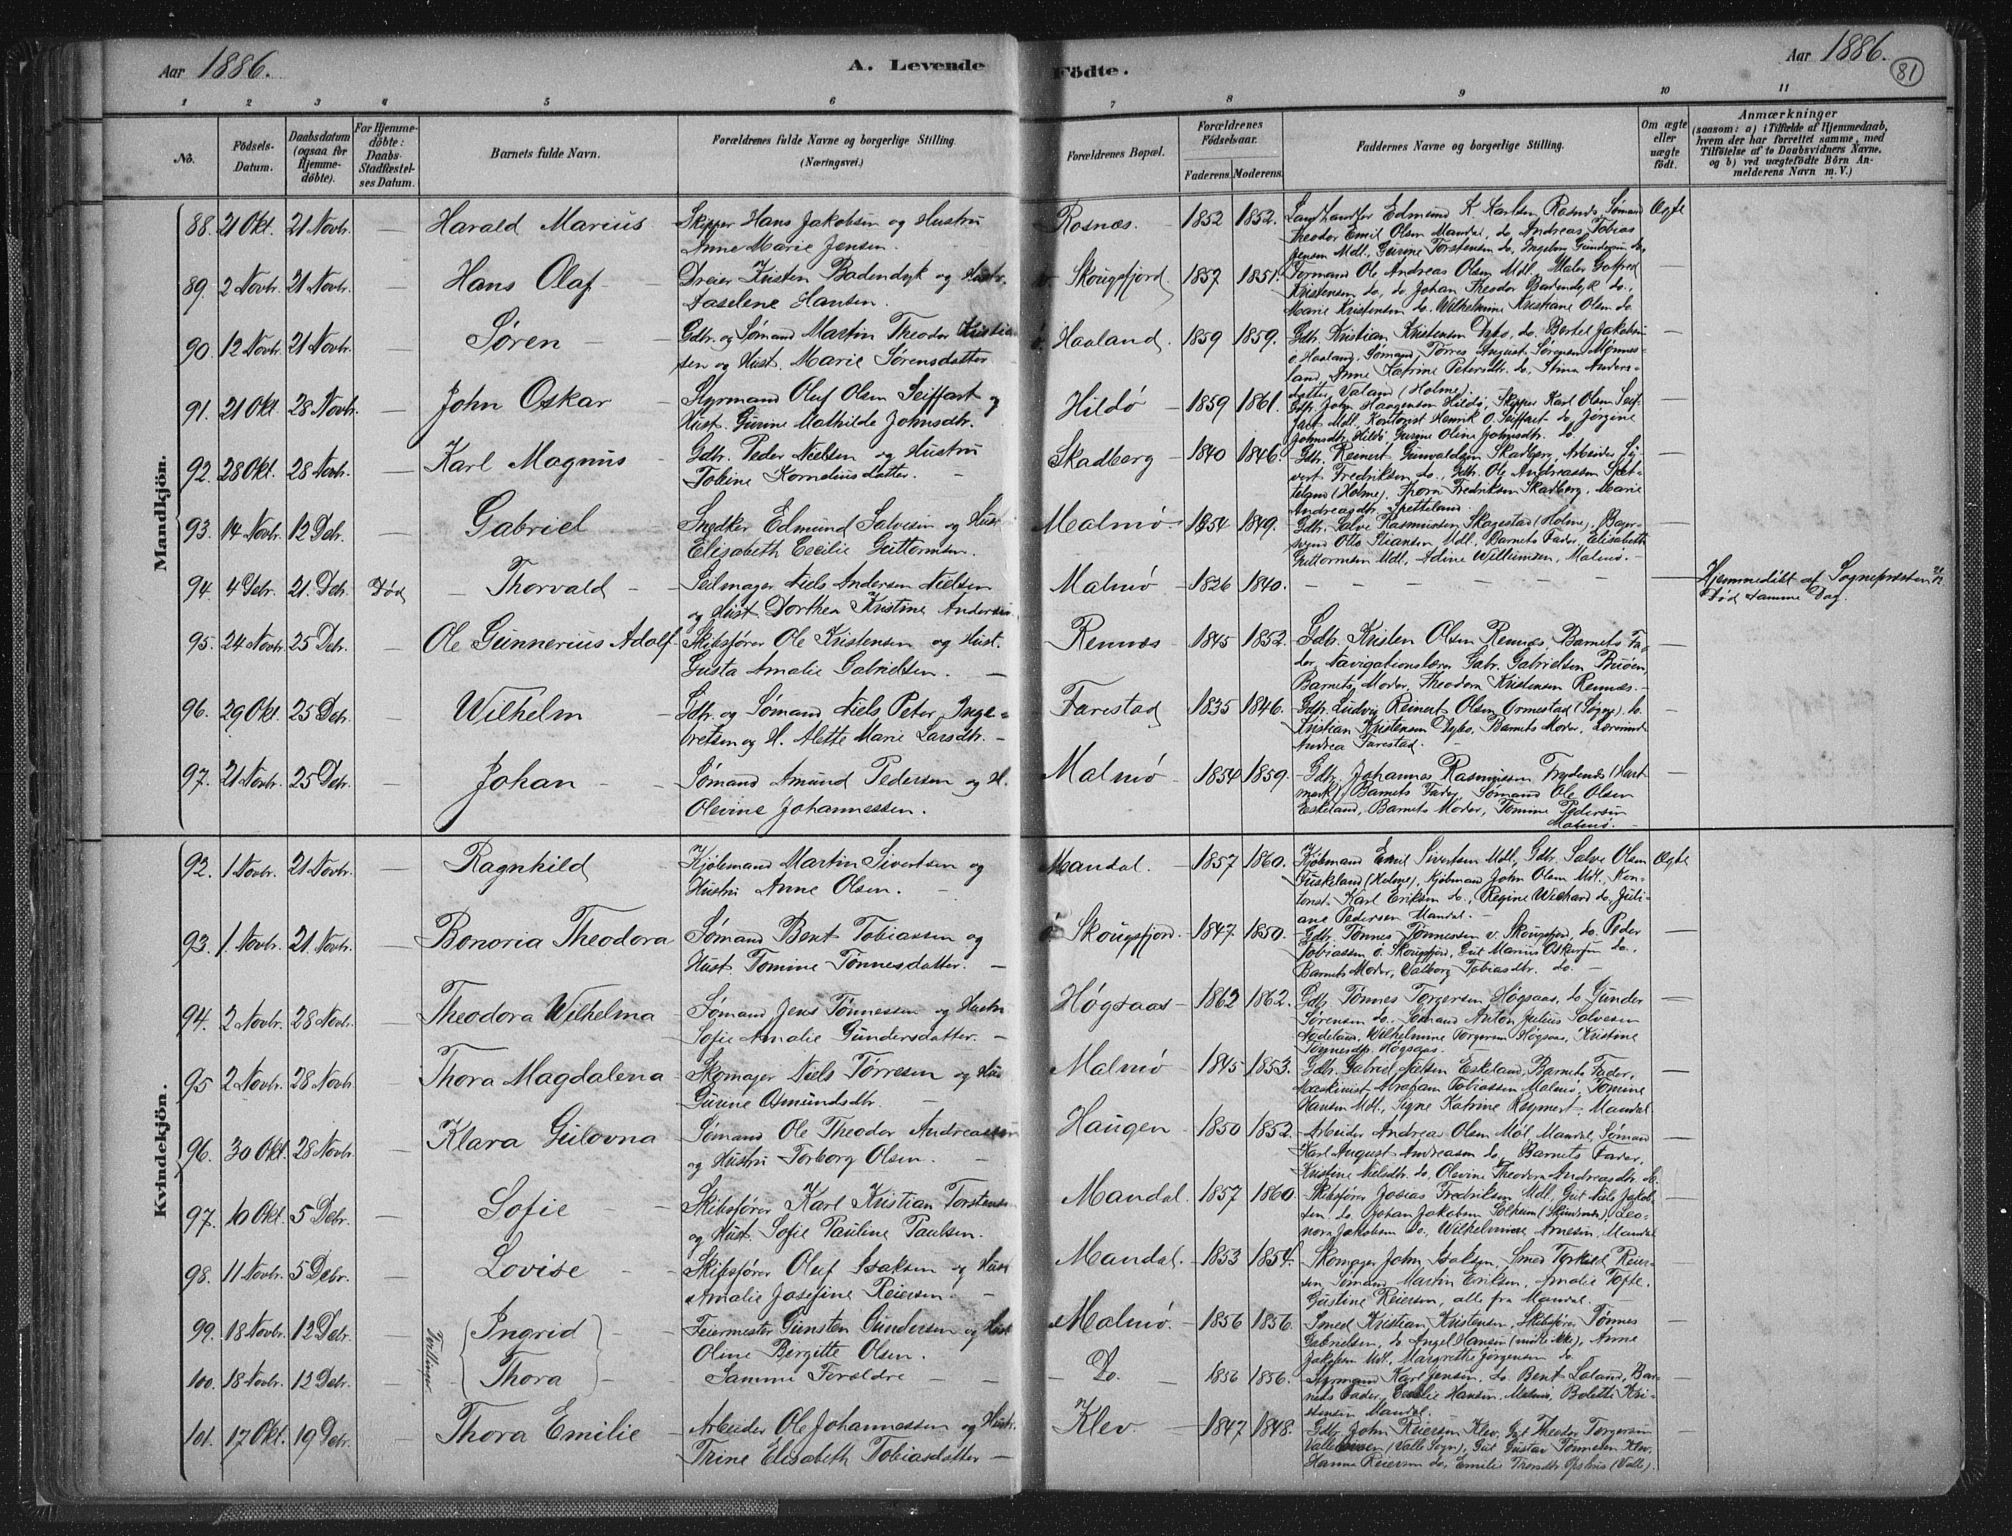 Aar 1886.
A. Levende Födte.
Aar 1886.
81
1 2 3 4 5 6 7 8 9 10 11
No.
Födsels-Datum.
Daabsdatum (ogsaa for Hjemme-döbte).
For Hjemme-döbte: Daabs-Stadfæstel-ses Datum.
Barnets fulde Navn.
Forældrenes fulde Navne og borgerlige Stilling (Næringsvei.)
Forældrenes Bopæl.
Forældrenes Födselsaar.
Faderens. Moderens.
Faddernes Navne og borgerlige Stilling.
Om ægte eller uægte födt.
Anmærkninger
(saasom: a) i Tilfælde af Hjemmedaab, hvem der har forrettet samme, med Tilföielse af to Daabsvidners Navne, og b) ved uægtefödte Börn An-melderens Navn m. V.)
Mandkjön.
88. 21 Okt. 21 Novbr. — Harald Marius
Skipper Hans Jakobsen og Hustru
Anne Marie Jensen.
Rosnæs. 1852 1852.
Landhandler Edmund K. Karlsen Rosnæs, Sømand
Theodor Emil Olsen Mandal, do Andreas Tobias
Jensen Mdl., Gurine Torstensen do, Ingeborg Gundersen do.
Ægte
89. 2 Novbr. 21 Novbr. — Hans Olaf
Dreier Kristen Badendyk og Hustr.
Aaselene Hansen.
v. Skougsfjord 1857 1851.
Formand Ole Andreas Olsen Mdl., Maler Gotfred
Kristensen do, do Johan Theodor Badendyk do.,
Marie Kristensen do. Wilhelmine Kristiane Olsen do
90. 12 Novbr. 21 Novbr. — Søren
Gdbr. og Sømand Martin Theodor Kristen
sen og Hust. Marie Sørensdatter
ö. Haaland. 1859 1859.
Gdbr. Kristian Kristensen Dybo, do. Bertel Jakobsen
ö. Haaland, Sømand Torres August Sørensen Mønnes-
land, Anne Katrine Petersdtr. do, Stina Anders-
datter, Valand (Holme).
91. 21 Okt. 28 Novbr. — John Oskar
Styrmand Oluf Olsen Seiffart og
Hust. Gurine Mathilde Johnsdtr.
Hildø 1859 1861.
Gdbr. John Haagensen Hildö, Skipper Karl Olsen Seif-
fart Mdl., Kontorist Henrik O. Seiffart do, Jörgine
Johnsdtr. Hildö, Gurine Oline Johnsdtr. do.
92. 28 Okt. 28 Novbr. — Karl Magnus
Gdbr. Peder Nielsen og Hustru
Tobine Korneliusdatter.
Skadberg 1840 1846.
Gdbr. Reinert Gunvaldsen Skadberg, Arbeider Sy-
vert Fredriksen do., Gdbr. Ole Andreassen Spet-
teland (Holme), Thora Fredriksen Skadberg, Marie
Andreasdtr. Spetteland.
93. 14 Novbr. 12 Debr. — Gabriel
Snedker Edmund Salvesen og Hust
Elisabeth Cecilie Guttormsen.
Malmø 1854 1849.
Gdbr. Salve Rasmussen Skagestad (Holme), Bager-
svend Otto Stiansen Mdl., Barnets Fader, Elisabeth
Guttormsen Mdl., Adine Willumsen, Malmö.
94. 4 Debr. 21. Debr. Död Thorvald
Seilmager Niels Andersen Nielsen
og Hust. Dorthea Kristine Andersen
Malmø 1826 1840.
Hjemmedöbt af Sognepræsten
Död samme Dag.
95. 24 Novbr. 25 Debr. — Ole Gunnerius Adolf
Skibsfører Ole Kristensen og Hust.
Gusta Amalie Gabrielsen.
Rennæs 1845 1852.
Gdbr. Kristen Olsen Rennæs, Barnets Fa-
der, Navigationslærer Gabr. Gabrielsen Bruöen,
Barnets Moder, Theodora Kristensen Rennæs.
96. 29 Okt. 25 Debr. — Wilhelm
Gdbr. og Sømand Niels Peter Inge-
bretsen og H. Alette Marie Larsdtr.
Farestad 1835 1846.
Gdbr. Ludvig Reinert Olsen Ormestad (Sogne). do.
Kristian Kristensen Dybo, Barnets Moder, Lærerinde
Andrea Farestad.
97. 21 Novbr. 25 Debr. — Johan
Sømand Amund Pedersen og H.
Olevine Johannessen.
Malmø 1854 1859.
Gdbr. Johannes Rasmussen Frydenæs (Hart-
mark), Barnets Fader, Sømand Ole Olsen
Eskeland, Barnets Moder, Tomine Pedersen
Malmö.
Kvindekjön.
92. 1 Novbr. 21 Novbr. — Ragnhild
Kjøbmand Martin Sivertsen og
Hustru Anne Olsen.
Mandal. 1857 1860.
Kjøbmand Emil Sivertsen Mdl., Gdbr. Salve Olsen
Fuskeland (Holme), Kjøbmand John Olsen Mdl., Kon-
torist Karl Eriksen do., Regine Wishard do, Juli-
ane Pedersen Mandal.
Ægte
93. 1 Novbr. 21 Novbr. — Bonoria Theodora
Sømand Bent Tobiassen og
Hust. Tomine Tønnesdatter.
ö. Skougsfjord. 1847 1850.
Gdbr. Tønnes Tønnessen v. Skougsfjord, do. Peder
Tobiassen ö. Skougsfjord, Gut Marius Oskarsen do.,
Barnets Moder, Valborg Tobiasdtr. do.
94. 2 Novbr. 28 Novbr. — Theodora Wilhelmina
Sømand Jens Tønnessen og Hustru
Sofie Amalie Gundersdatter.
Høgsaas 1862 1862.
Gdbr. Tønnes Torgersen Høgsaas, do. Gunder
Sørensen do. Sømand Anton Julius Salvesen
Nodeland, Wilhelmine Torgersen Høgsaas, Kristine
Tønnesdtr. Høgsaas.
95 2 Novbr. 28 Novbr. — Thora Magdalena
Skomager Niels Tørresen og Hus
Gurine Asmundsdtr.
Malmø 1845 1853.
Gdbr. Gabriel Nielsen Eskeland, Barnets Fader,
Maskinist Abraham Tobiassen Malmö, Tomine
Hansen Mdl., Signe Katrine Regnert, Mandal
96. 30 Okt. 28 Novbr. — Klara Gulovna
Sømand Ole Theodor Andreassen
og Hustru Torborg Olsen.
Haugen 1850 1852.
Arbeider Andreas Olsen Möl Mandal, Sømand
Karl August Andreasen do, Barnets Fader,
Kristine Nielsdtr. do, Olevine Theodora Andreasdtr.
97. 10 Okt. 5 Debr. — Sofie
Skibsfører Karl Kristian Torstensen
og Hust. Sofie Pauline Paulsen.
Mandal. 1857 1860
Skibsfører Josias Fredriksen Mdl., Gut Niels Jakob-
sen do. Johan Jakobsen Solheim (Skindsnæs), Leo-
nora Jakobsen do. Wilhelmine Arnesen, Mandal
98. 11 Novbr. 5 Debr. — Lovise
Skibsfører Oluf Isaksen og Hust
Amalie Josefine Reiersen.
Mandal. 1853 1854.
Skomager John Isaksen, Smed Torkild Reier-
sen, Sømand Martin Eriksen, Amalie Tofte,
Gustine Reiersen, alle fra Mandal.
Tvillinger
99. 18 Novbr. 12 Debr. Ingrid
Feiermester Gunsten Gundersen og Hust
Oline Bergitte Olsen.
Malmø. 1856 1856.
Smed Kristian Kristensen, Skibsfører Tønnes
Gabrielsen, do Angel Hansen (mötte ikke), Anne
Jakobsen Mdl., Margrethe Jörgensen do.
100. 18 Novbr. 12 Debr. — Thora
Samme Forældre
Do. 1856 1856.
Styrmand Karl Jensen, do. Bent Loland, Bar-
nets Fader, Emilie Hansen, Malmö, Bolette Kri-
stensen Mandal.
101. 17 Okt. 19 Debr. — Thora Emilie
Arbeider Ole Johannessen og Hustr.
Trine Elisabeth Tobiasdatter
Klev. 1847 1848.
Gdbr. John Reiersen Klev, Gut Theodor Torgersen
(Valle Sogn), Gut Gustav Tønnesen Klev,
Hanna Reiersen do, Emilie Trondtr. Opshus (Valle).